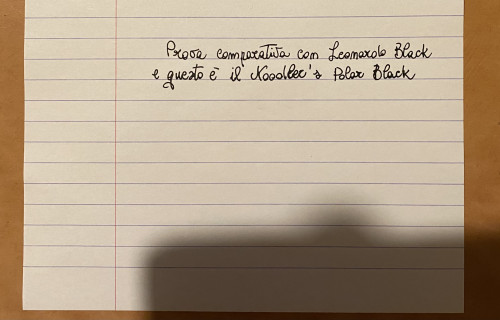 Prova comparativa con Leonardo Black
e questo è il Noodler's Polar Black